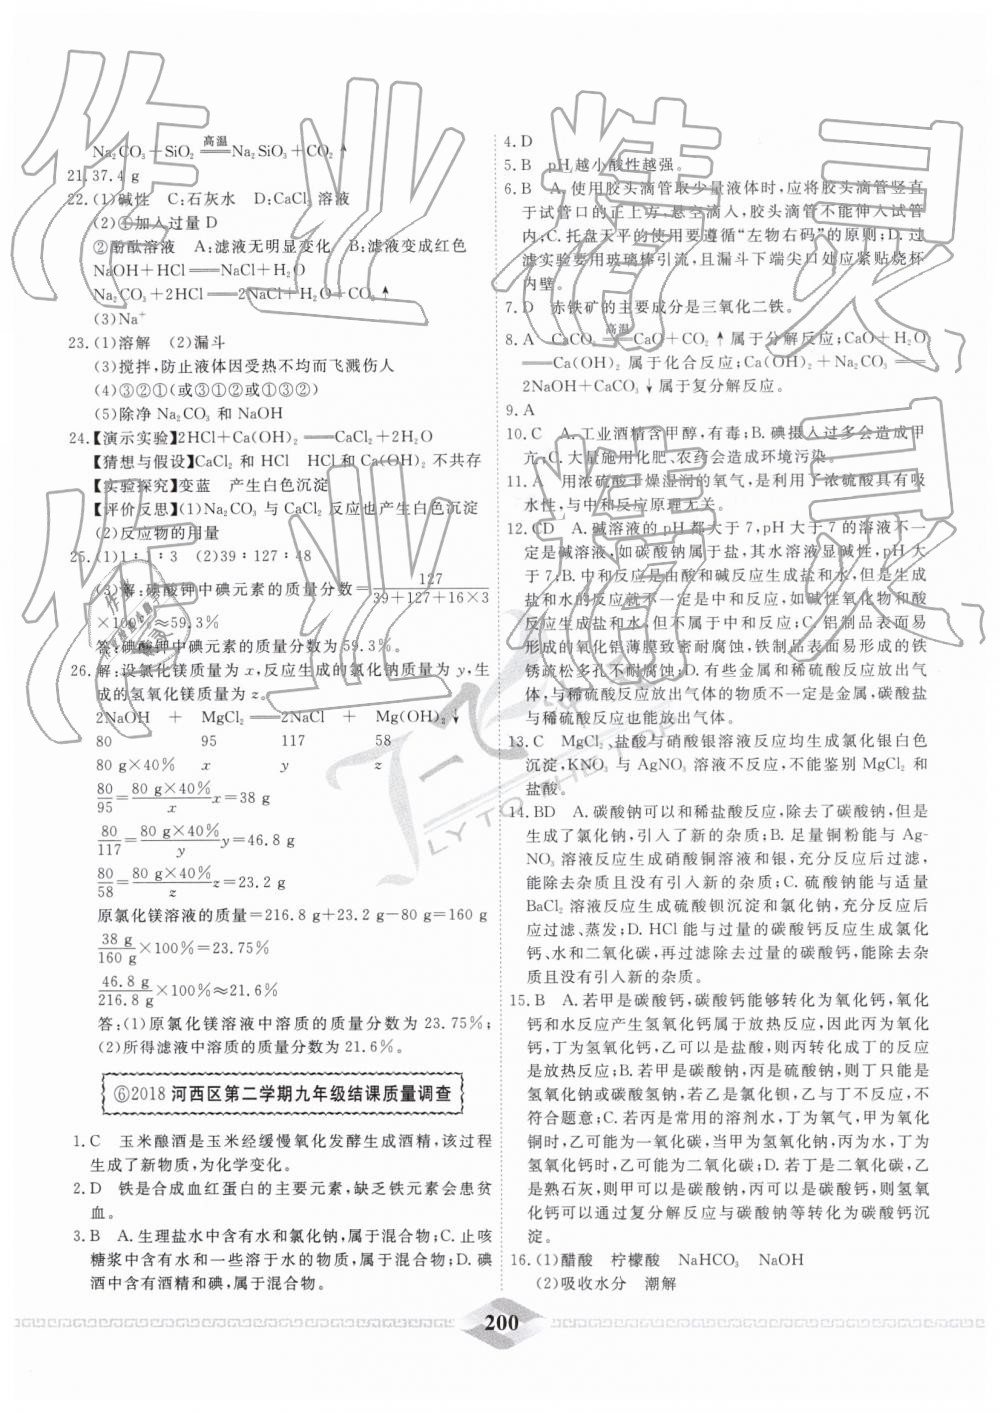 Na₂CO₃+SiO₂ 高温══ Na₂SiO₃+CO₂↑
21. 37.4 g
22. (1)碱性 C:石灰水 D:CaCl₂ 溶液
(2)①加入过量 D
②酚酞溶液 A:滤液无明显变化 B:滤液变成红色
NaOH+HCl══NaCl+H₂O
Na₂CO₃+2HCl══2NaCl+H₂O+CO₂↑
(3)Na⁺
23. (1)溶解 (2)漏斗
(3)搅拌,防止液体因受热不均而飞溅伤人
(4)③②①(或③①②或①③②)
(5)除净 Na₂CO₃ 和 NaOH
24.【演示实验】2HCl+Ca(OH)₂══CaCl₂+2H₂O
【猜想与假设】CaCl₂ 和 HCl HCl 和 Ca(OH)₂ 不共存
【实验探究】变蓝 产生白色沉淀
【评价反思】(1)Na₂CO₃ 与 CaCl₂ 反应也产生白色沉淀
(2)反应物的用量
25. (1)1∶1∶3 (2)39∶127∶48
(3)解:碘酸钾中碘元素的质量分数=127/(39+127+16×3)
×100%≈59.3%
答:碘酸钾中碘元素的质量分数为 59.3%。
26. 解:设氯化镁质量为 x,反应生成的氯化钠质量为 y,生
成的氢氧化镁质量为 z。
2NaOH + MgCl₂══2NaCl + Mg(OH)₂↓
80 95 117 58
80 g×40% x y z
80/95=80 g×40%/x x=38 g
80/117=80 g×40%/y y=46.8 g
80/58=80 g×40%/z z=23.2 g
原氯化镁溶液的质量=216.8 g+23.2 g-80 g=160 g
38 g/160 g×100%=23.75%
46.8 g/216.8 g×100%≈21.6%
答:(1)原氯化镁溶液中溶质的质量分数为 23.75%;
(2)所得滤液中溶质的质量分数为 21.6%。
⑥2018 河西区第二学期九年级结课质量调查
1. C 玉米酿酒是玉米经缓慢氧化发酵生成酒精,该过程
生成了新物质,为化学变化。
2. D 铁是合成血红蛋白的主要元素,缺乏铁元素会患贫
血。
3. B A. 生理盐水中含有水和氯化钠,属于混合物;C. 止咳
糖浆中含有水和一些溶于水的物质,属于混合物;D. 碘
酒中含有酒精和碘,属于混合物。
4. D
5. B pH 越小酸性越强。
6. B A. 使用胶头滴管取少量液体时,应将胶头滴管竖直
于试管口的正上方,悬空滴入,胶头滴管不能伸入试管
内;C. 托盘天平的使用要遵循“左物右码”的原则;D. 过
滤实验要用玻璃棒引流,且漏斗下端尖口处应紧贴烧杯
内壁。
7. D 赤铁矿的主要成分是三氧化二铁。
8. A CaCO₃ 高温══ CaO+CO₂↑属于分解反应;CaO+H₂O
══Ca(OH)₂ 属于化合反应;Ca(OH)₂+Na₂CO₃══
2NaOH+CaCO₃↓属于复分解反应。
9. A
10. C A. 工业酒精含甲醇,有毒;B. 碘摄入过多会造成甲
亢;C. 大量施用化肥、农药会造成环境污染。
11. A 用浓硫酸干燥湿润的氧气,是利用了浓硫酸具有吸
水性,与中和反应原理无关。
12. CD A. 碱溶液的 pH 都大于 7,pH 大于 7 的溶液不一
定是碱溶液,如碳酸钠属于盐,其水溶液显碱性,pH 大
于 7;B. 中和反应是由酸和碱反应生成盐和水,但是生成
盐和水的反应就不一定是中和反应,如碱性氧化物和酸
反应生成盐和水,但不属于中和反应;C. 铝制品表面易
形成的氧化铝薄膜致密耐腐蚀,铁制品表面易形成的铁
锈疏松多孔不耐腐蚀;D. 有些金属和稀硫酸反应放出气
体,与稀硫酸反应放出气体的物质不一定是金属,碳酸盐
与稀硫酸反应也能放出气体。
13. C MgCl₂、盐酸与硝酸银溶液反应均生成氯化银白色
沉淀,KNO₃ 与 AgNO₃ 溶液不反应,不能鉴别 MgCl₂ 和
盐酸。
14. BD A. 碳酸钠可以和稀盐酸反应,除去了碳酸钠,但是
生成了氯化钠,引入了新的杂质;B. 足量铜粉能与 Ag-
NO₃ 溶液反应生成硝酸铜溶液和银,充分反应后过滤,
能除去杂质且没有引入新的杂质;C. 硫酸钠能与适量
BaCl₂ 溶液反应生成硫酸钡沉淀和氯化钠,充分反应后
应过滤、蒸发;D. HCl 能与过量的碳酸钙反应生成氯化
钙、水和二氧化碳,再过滤除去过量的碳酸钙,能除去杂
质且没有引入新的杂质。
15. B A. 若甲是碳酸钙,碳酸钙能够转化为氧化钙,氧化
钙和水反应产生氢氧化钙属于放热反应,因此丙为氧化
钙,丁为氢氧化钙,乙可以是盐酸,丙转化成丁的反应
是放热反应;B. 若乙为碳酸钠,丙是硫酸钠,则丁只能是
氢氧化钠或碳酸氢钠,若乙是氯化钡,乙与丁不反应,不
符合题意;C. 若丙是常用的溶剂水,丁为氧气,甲为氧化
铜时,乙可能为一氧化碳,当甲为氢氧化钠,丙为水,丁为
氢氧化钙时,乙可能为二氧化碳;D. 若丁是二氧化碳,乙
是熟石灰,则甲可以是碳酸钠,丙可以是碳酸钙,则氢氧
化钙可以通过复分解反应与碳酸钠等转化为碳酸钙沉
淀。
16. (1)醋酸 柠檬酸 NaHCO₃ NaOH
(2)吸收水分 潮解
200
作业精灵
作业精灵